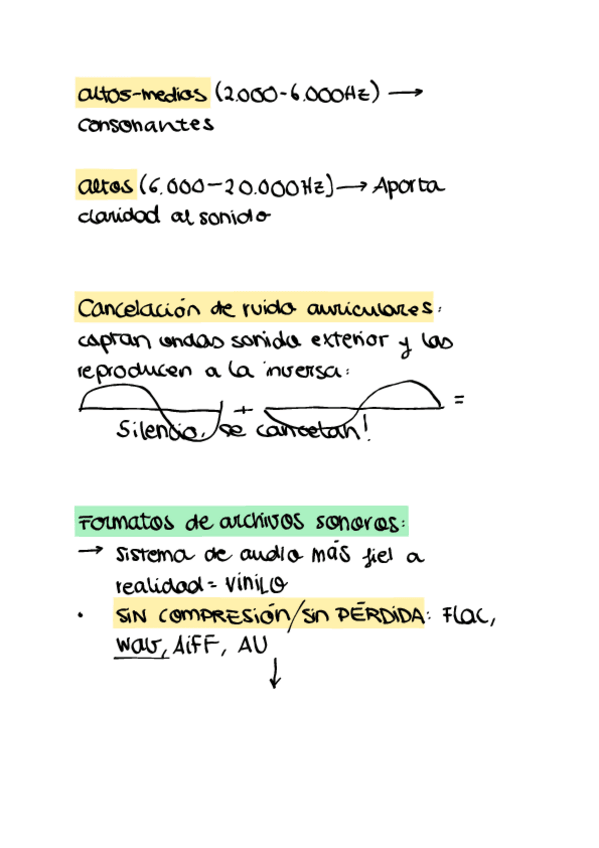 altos-medios (2.000-6.000Hz) →
consonantes
altos (6.000-20.000Hz) → Aporta
claridad al sonido
Cancelación de ruido auriculares:
captan ondas sonido exterior y las
reproducen a la inversa:
+ =
Silencio, se cancelan!
Formatos de archivos sonoros:
→ Sistema de audio más fiel a
realidad = VINILO
• SIN COMPRESIÓN/SIN PÉRDIDA: Flac,
wav, AIFF, AU
↓